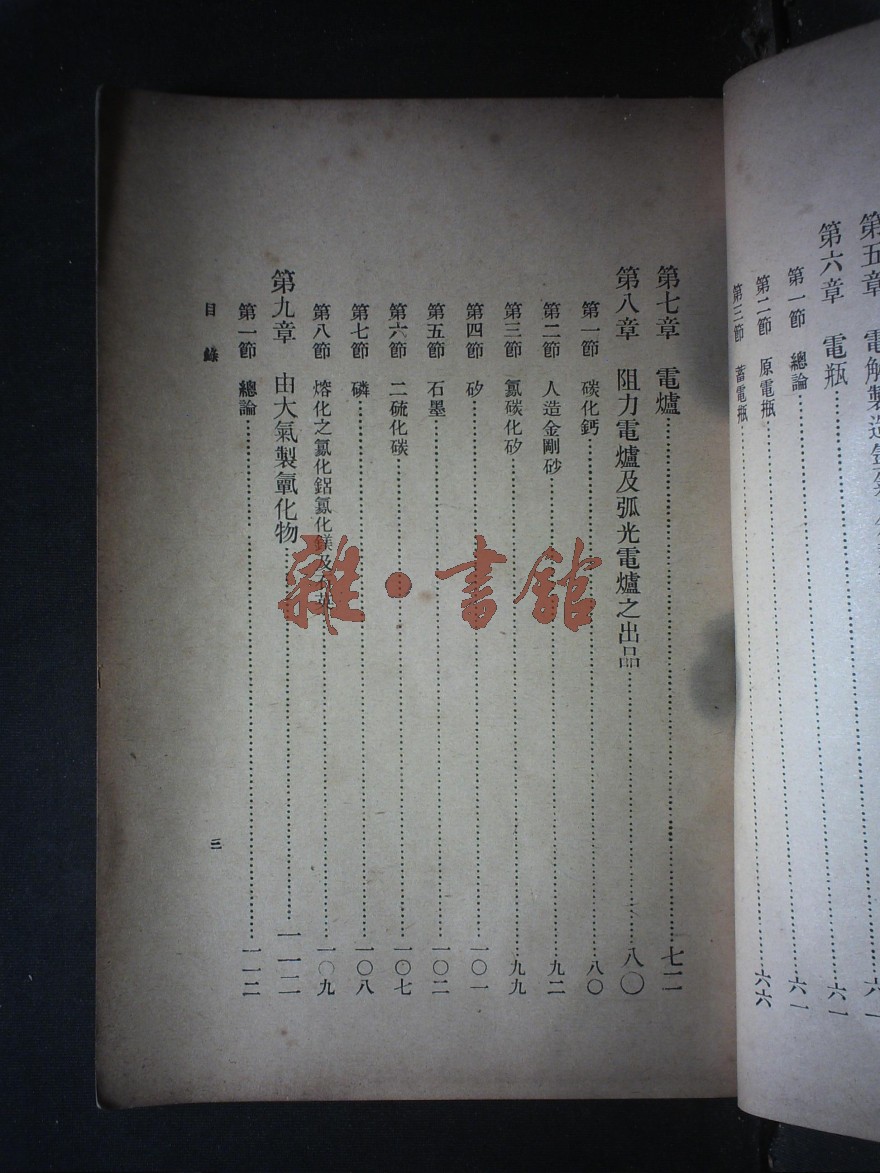 第五章 電解製造
第六章 電瓶……六一
第一節 總論……六一
第二節 原電瓶……六六
第三節 蓄電瓶……
第七章 電爐……七二
第八章 阻力電爐及弧光電爐之出品……八〇
第一節 碳化鈣……八〇
第二節 人造金剛砂……九二
第三節 碳化矽……九九
第四節 矽……一〇一
第五節 石墨……一〇二
第六節 二硫化碳……一〇七
第七節 磷……一〇八
第八節 熔化之 化鋁 化鎂及……一〇九
第九章 由大氣製 化物……一一二
第一節 總論……一一二
目錄
三
雜·書館